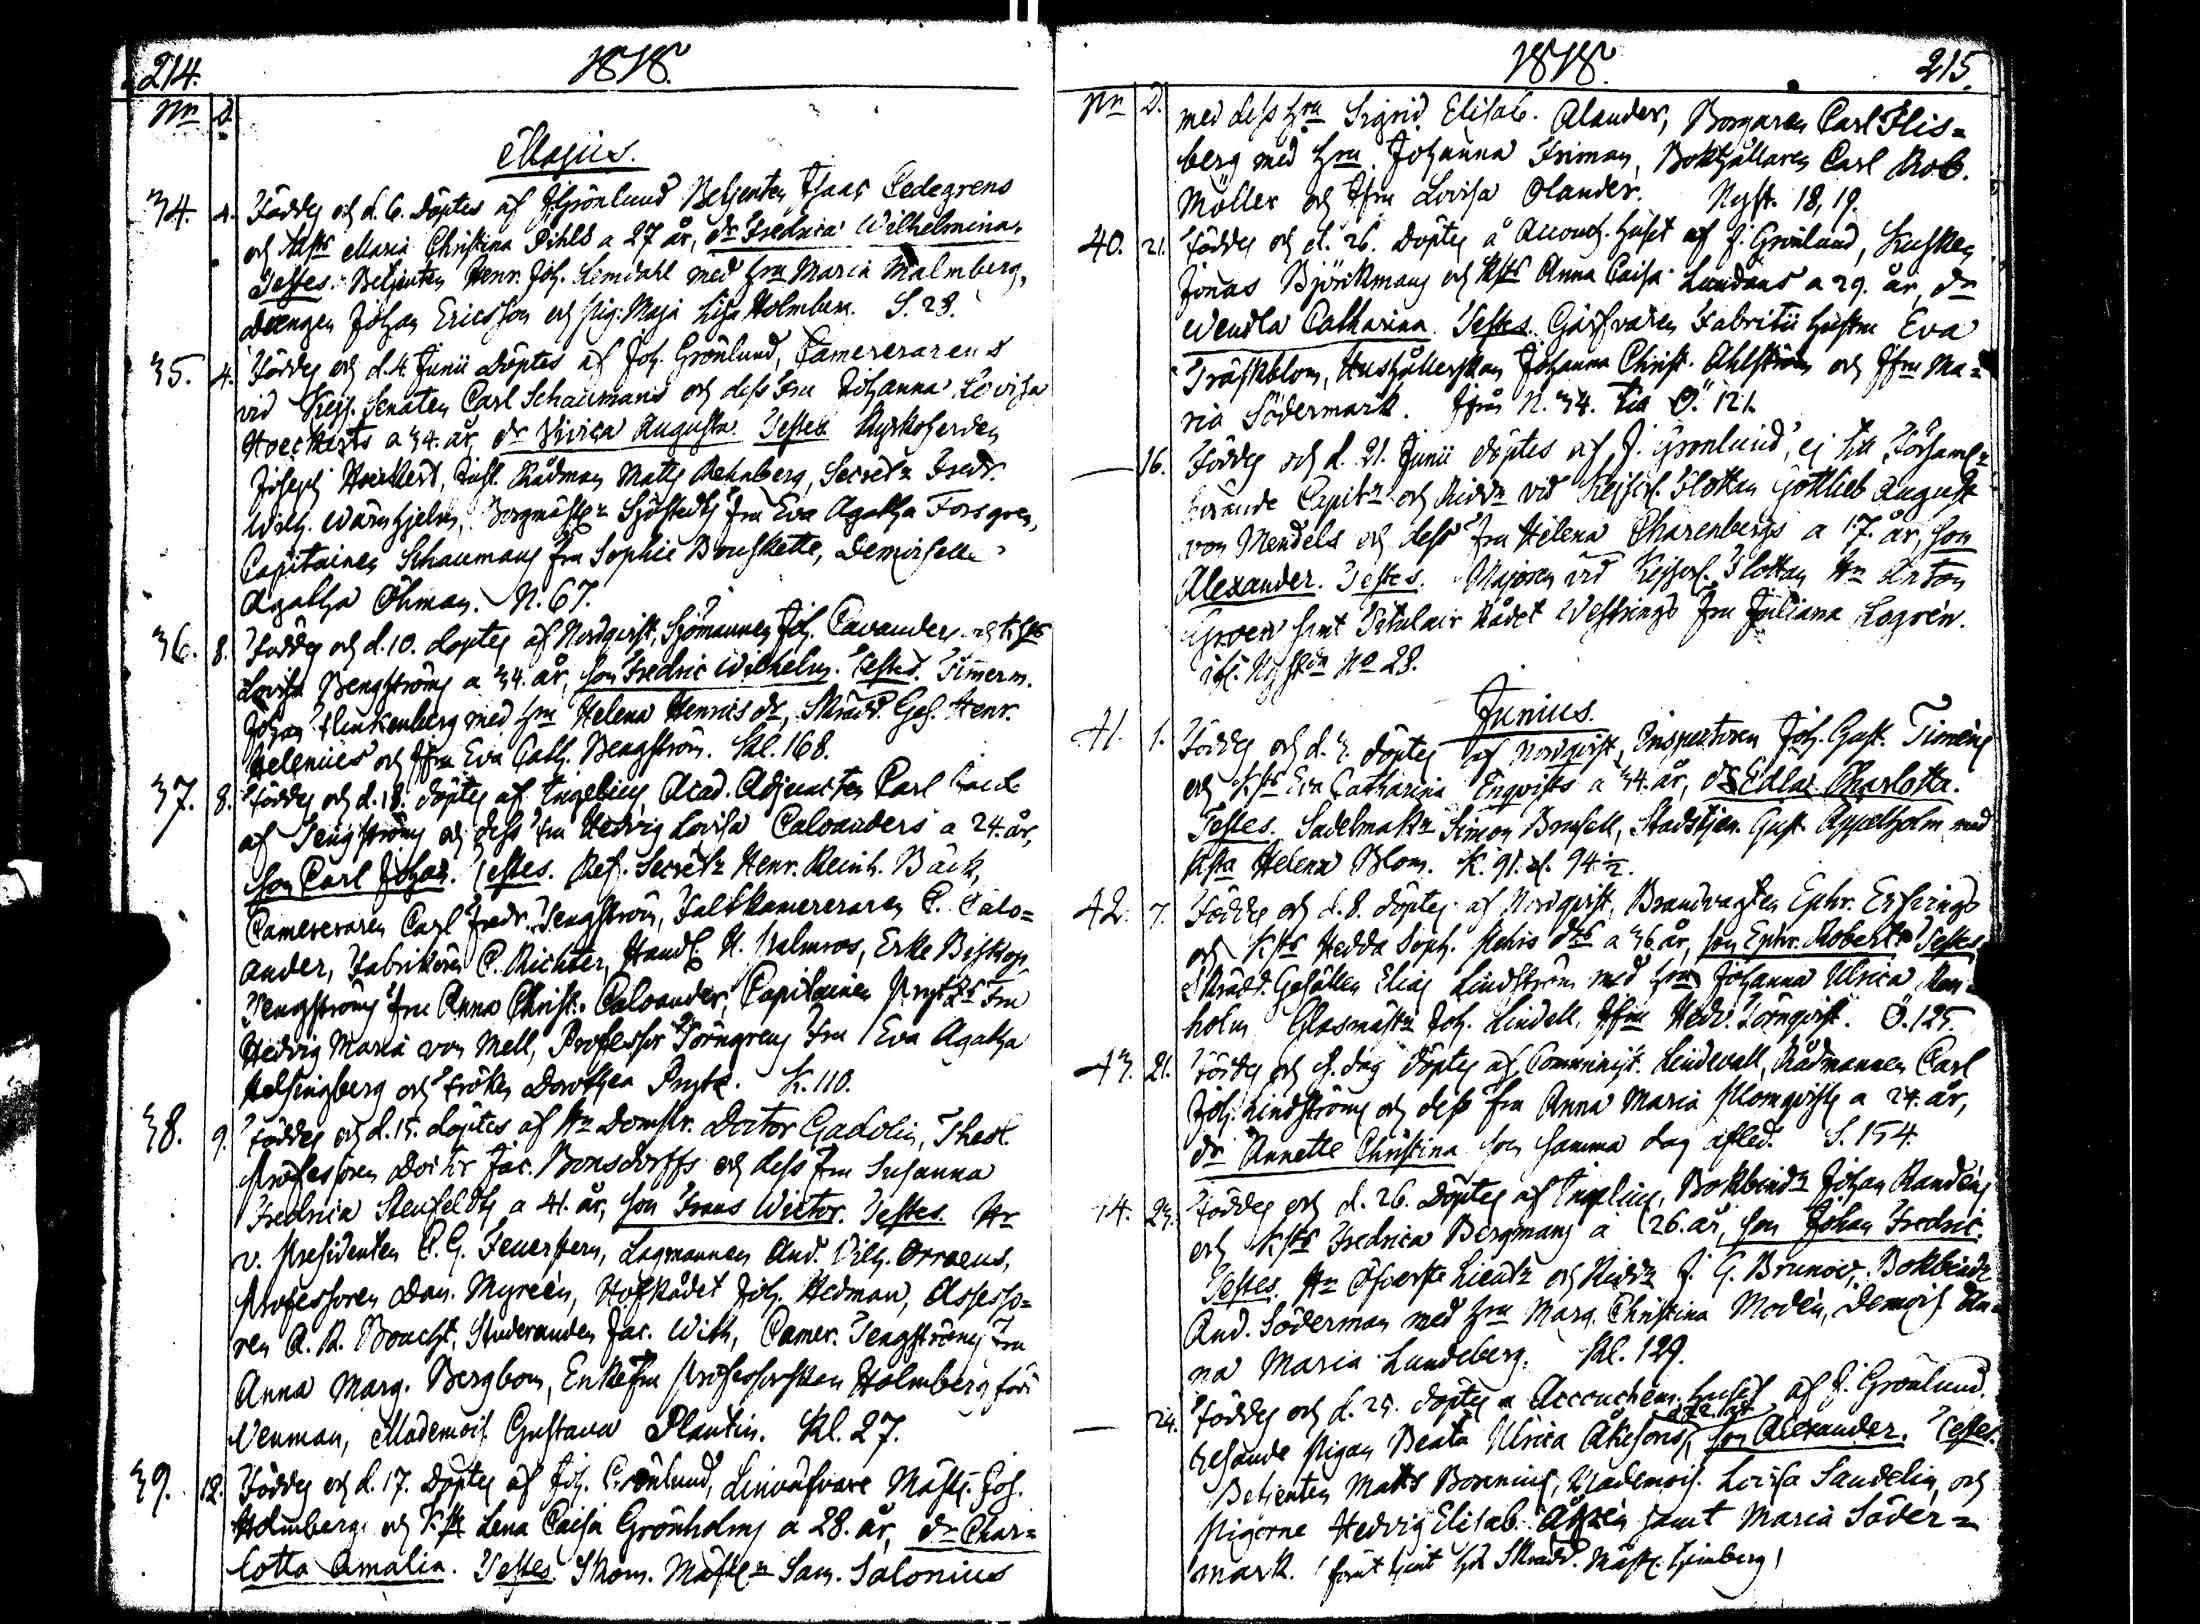 214.
1818.
No D.
Majus.
34. 4. Föddes och d. 6. döptes af J. Grönlund Betjenten Isaac Cedergrens
och Hustr Maria Christina Pihls a 27 år, dr Fredrica Wilhelmina.
Testes. Betjenten Henr. Joh. Lemdahl med hru Maria Malmberg,
Drengen Johan Ericsson och pig. Maja Lisa Holmberg. S. 28.
35. 4. Föddes och d. 4 Junii döptes af Joh. Grönlund, Camererarens
vid Kejs. Senaten Carl Schaumans och dess Fru Johanna Lovisa
Hoeckerts a 34. år dr Vivica Augusta. Testes Kyrkoherden
Joseph Hoeckert, Rådman Matts Rehnberg, Secret. Fredr.
Wilh. Wärnhjelm, Borgmäst. Sjöstedts fru Eva Agatha Forsgren,
Capitainen Schaumans fru Sophie Bruskette, Demoiselle
Agatha Öhman. N. 67.
36. 8. Föddes och d. 10. döptes af Nordqvist, Sjömannen Joh. Cavanders och Hust
Lovisa Bengströms a 34. år, son Fredric Wilhelm. Testes. Timerm.
Johan Flinkenberg med hru Helena Henricsdr, Skradd. Ges. Henr.
Helenius och Jfru Eva Cath. Bengström. Kl. 168.
37. 8. Föddes och d. 18. döptes af Ingelius, Acad. Adjuncten Carl
af Tengströms och dess fru Hedvig Lovisa Caloanders a 24. år,
son Carl Johan. Testes. Ref. Secret. Henr. Reinh. Bäck,
Camereraren Carl Fredr. Tengström, Fältkamereraren C. Calo=
ander, Fabrikören C. Richter, Handl. H. Malmros, Erke Biskop
Tengströms fru Anna Christ. Caloander, Capitainen Prytz's Fru
Hedvig Maria von Mell, Professor Törngrens Fru Eva Agatha
Helsingberg och Fröken Dorothea Prytz. K. 110.
38. 9. Föddes och d. 15. döptes af Hr Domspr. Doctor Gadolin, Theol.
Professoren Doctor Jac. Bonsdorffs och dess Fru Susanna
Fredrica Stenfeldts a 41. år, son Frans Victor. Testes. Hr
v. Presidenten C. G. Feuerstern, Lagmannen And. Wilh. Orraeus,
Professoren Dan. Myreen, Hofrådet Joh. Hedman, Assesso=
ren A. R. Boucht, Studeranden Jac. With, Camer. Tengströms Fru
Anna Marg. Bergbom, Enkefru Professorskan Holmberg född
Venman, Mademois. Gustava Plantin. Kl. 27.
39. 12. Föddes och d. 17. döptes af Joh. Grönlund, Linväfvare Mäst.
Holmbergs och Hust Lena Caisa Grönholms a 28. år, dr Char=
lotta Amalia. Testes. Skom. Mäst. Sam. Salonius
1818.
215.
No D.
med dess hru Sigrid Elisab. Alander, Borgaren Carl Flis=
berg med hru Johanna Friman, Bokhållaren Carl Rob.
Möller och Jfru Lovisa Olander. Nyst. 18, 19.
40. 21. Föddes och d. 26. döptes å Accouch. huset af J. Grönlund, Kusken
Jonas Björkmans och Hust Anna Caisa Lundans a 29. år, dr
Wendla Catharina. Testes. Garfvaren Fabritii hustru Eva
Träskblom, Hushållerskan Johanna Christ. Ahlström och Jfru Ma=
ria Södermark. ifrån N. 34. till Ö. 121.
— 16. Föddes och d. 21. Junii döptes af J. Grönlund, ej till Församl.
hörande Capit. och Ridd. vid Kejserl. Flottan Gottlieb August
von Mendels och dess Fru Helena Charenbergs a 17. år, son
Alexander. Testes. Majoren vid Kejserl. Flottan Hr Anton
Groen samt Titulair Rådet Westrings Fru Juliana Lagrén.
No 28.
Junius.
41. 1. Föddes och d. 3. döptes af Nordqvist, Inspectoren Joh. Gust. Timéns
och Hust Eva Catharina Enqvists a 34. år, dr Edla Charlotta.
Testes. Sadelmak. Simon Brusell, Stadstjen. Gust. Appelholm med
Hustr Helena Blom. K. 91. 94½.
42. 7. Föddes och d. 8. döptes af Nordqvist, Brandvagten Ephr. Essings
och Hust Hedda Soph. a 36 år, son Ephr. Robert. Testes
Skradd. Gesällen Elias Lindström med hru Johanna Ulrica
holm Glasmäst. Joh. Lindell, Jfru Hedv. Törnqvist. Ö. 125.
43. 21. Föddes och s. dag döptes af Comminist. Lindevall, Rådmannen Carl
Joh. Lindströms och dess fru Anna Maria Blomqvists a 24. år,
dr Annette Christina som samma dag afled. S. 154.
44. 23. Föddes och d. 26. döptes af Ingelius, Bokbind. Johan Randéns
och Hust Fredrica Bergmans a 26. år, son Johan Fredric.
Testes. Hr Öfverste Lieut. och Ridd. J. G. Brunow, Bokbind.
And. Söderman med hru Marg. Christina Modén, Demois. An=
na Maria Lundeberg. Kl. 129.
— 24. Föddes och d. 25. döptes a Accouchem. huset af J. Grönlund.
resande Pigan Beata Ulrica Åkesons, son Alexander. Testes.
Betjenten Matts Bonenius, Mademois. Lovisa Sandelin, och
Pigorne Hedvig Elisab. samt Maria Söder=
mark. (förut tjent hos Skradd. Mäst. Heimberg)